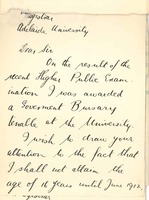 Registrar
Adelaide University
Dear Sir
On the result of the
recent Higher Public Exam-
ination I was awarded
a Goverment Bursary
tenable at the University.
I wish to draw your
attention to the fact that
I shall not attain the
age of 16 years until June 1912.